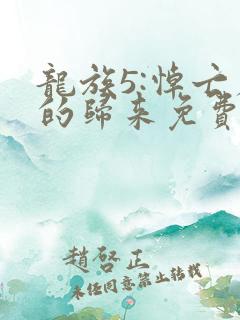 龍族5:悼亡
的歸來免費
趙啓正
未经同意禁止转载